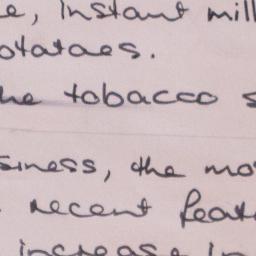 e, instant mil
otatoes.
he tobacco s
siness, the mo
recent feat
increase in